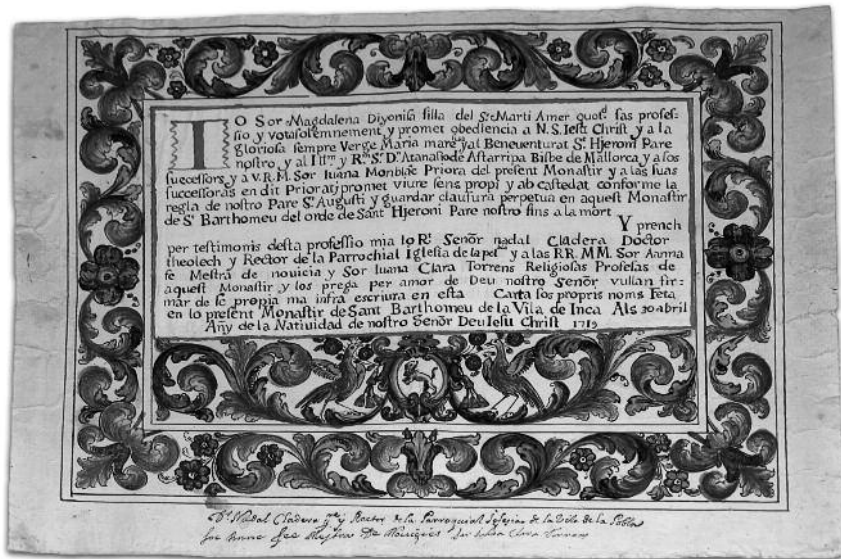 IO Sor Magdalena Diyonisa filla del Sr. Marti Amer quod. fas profes-
sio y vot solemnement y promet obediencia a N.S. Iesu Christ y a la
gloriosa sempre Verge Maria mare y al Beneventurat St. Hjeroni Pare
nostro y al Illm. y Rm. Sr. D. Atanasio de Astarripa Bisbe de Mallorca y a sos
successors y a V.R.M. Sor Iuana Monblac Priora del present Monastir y a las suas
successoras en dit Priorat; promet viure sens propi y ab castedat conforme la
regla de nostro Pare St. Augusti y guardar clausura perpetua en aquest Monastir
de St. Barthomeu del orde de Sant Hjeroni Pare nostro fins a la mort
Y prench
per testimonis desta professio mia lo Rt. Señor nadal Cladera Doctor
theolech y Rector de la Parrochial Iglesia de la y a las RR. MM. Sor Aanna
fe Mestra de novicia y Sor Iuana Clara Torrens Religiosas Profesas de
aquest Monastir y los prega per amor de Deu nostro Señor vullan fir-
mar de se propia ma infra escriura en esta Carta sos propris noms Feta
en lo present Monastir de Sant Barthomeu de la Vila de Inca Als 30 Abril
Añy de la Natividad de nostro Señor Deu Iesu Christ 1719
Dr. Nadal Cladera y Rector de la Parroquial Iglesia de la Vila de la Pobla
Sor Anne Fee Mestra De Novicies Sor Juana Clara Torrens